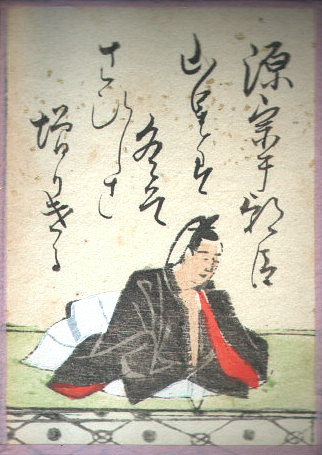 源宗于朝臣
山里は
冬そ
さひしさ
増りける